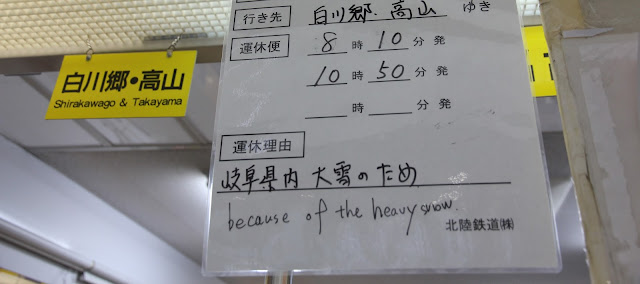 行き先 白川郷．高山 ゆき
運休便 8 時 10 分 発
10 時 50 分 発
時 分 発
運休理由
岐阜県内 大雪のため
because of the heavy snow.
北陸鉄道㈱
白川郷・高山
Shirakawago & Takayama